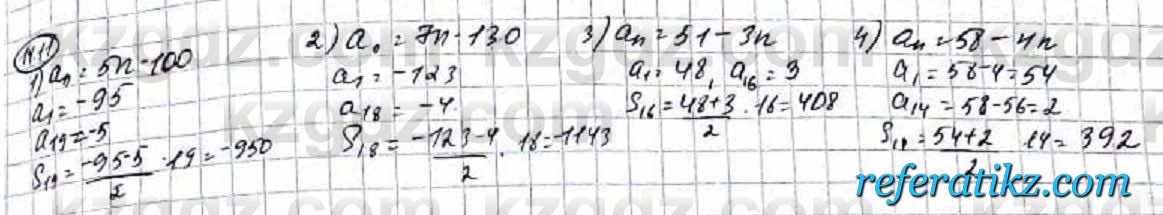 N 11
1) aₙ = 5n - 100
a₁ = -95
a₁₉ = -5
S₁₉ = (-95-5)/2 · 19 = -950
2) aₙ = 7n - 130
a₁ = -123
a₁₈ = -4
S₁₈ = (-123-4)/2 · 18 = -1143
3) aₙ = 51 - 3n
a₁ = 48, a₁₆ = 3
S₁₆ = (48+3)/2 · 16 = 408
4) aₙ = 58 - 4n
a₁ = 58-4 = 54
a₁₄ = 58-56 = 2
S₁₄ = (54+2)/2 14 = 392
referatikz.com